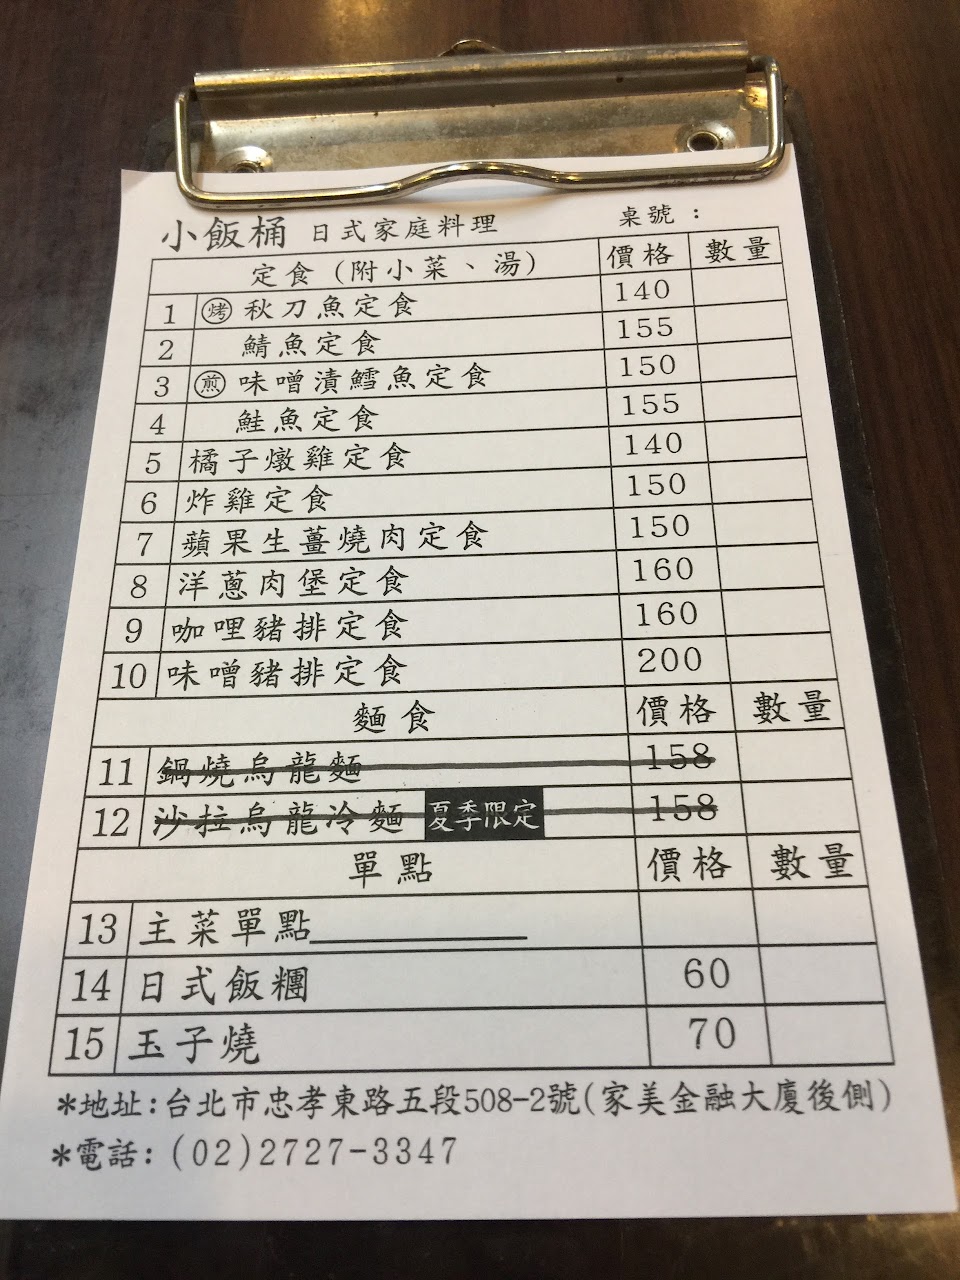 小飯桶 日式家庭料理 桌號：
定食（附小菜、湯） 價格 數量
1 烤 秋刀魚定食 140
2 鯖魚定食 155
3 煎 味噌漬鱈魚定食 150
4 鮭魚定食 155
5 橘子燉雞定食 140
6 炸雞定食 150
7 蘋果生薑燒肉定食 150
8 洋蔥肉堡定食 160
9 咖哩豬排定食 160
10 味噌豬排定食 200
麵食 價格 數量
11 鍋燒烏龍麵 158
12 沙拉烏龍冷麵 夏季限定 158
單點 價格 數量
13 主菜單點
14 日式飯糰 60
15 玉子燒 70
*地址:台北市忠孝東路五段508-2號(家美金融大廈後側)
*電話:(02)2727-3347